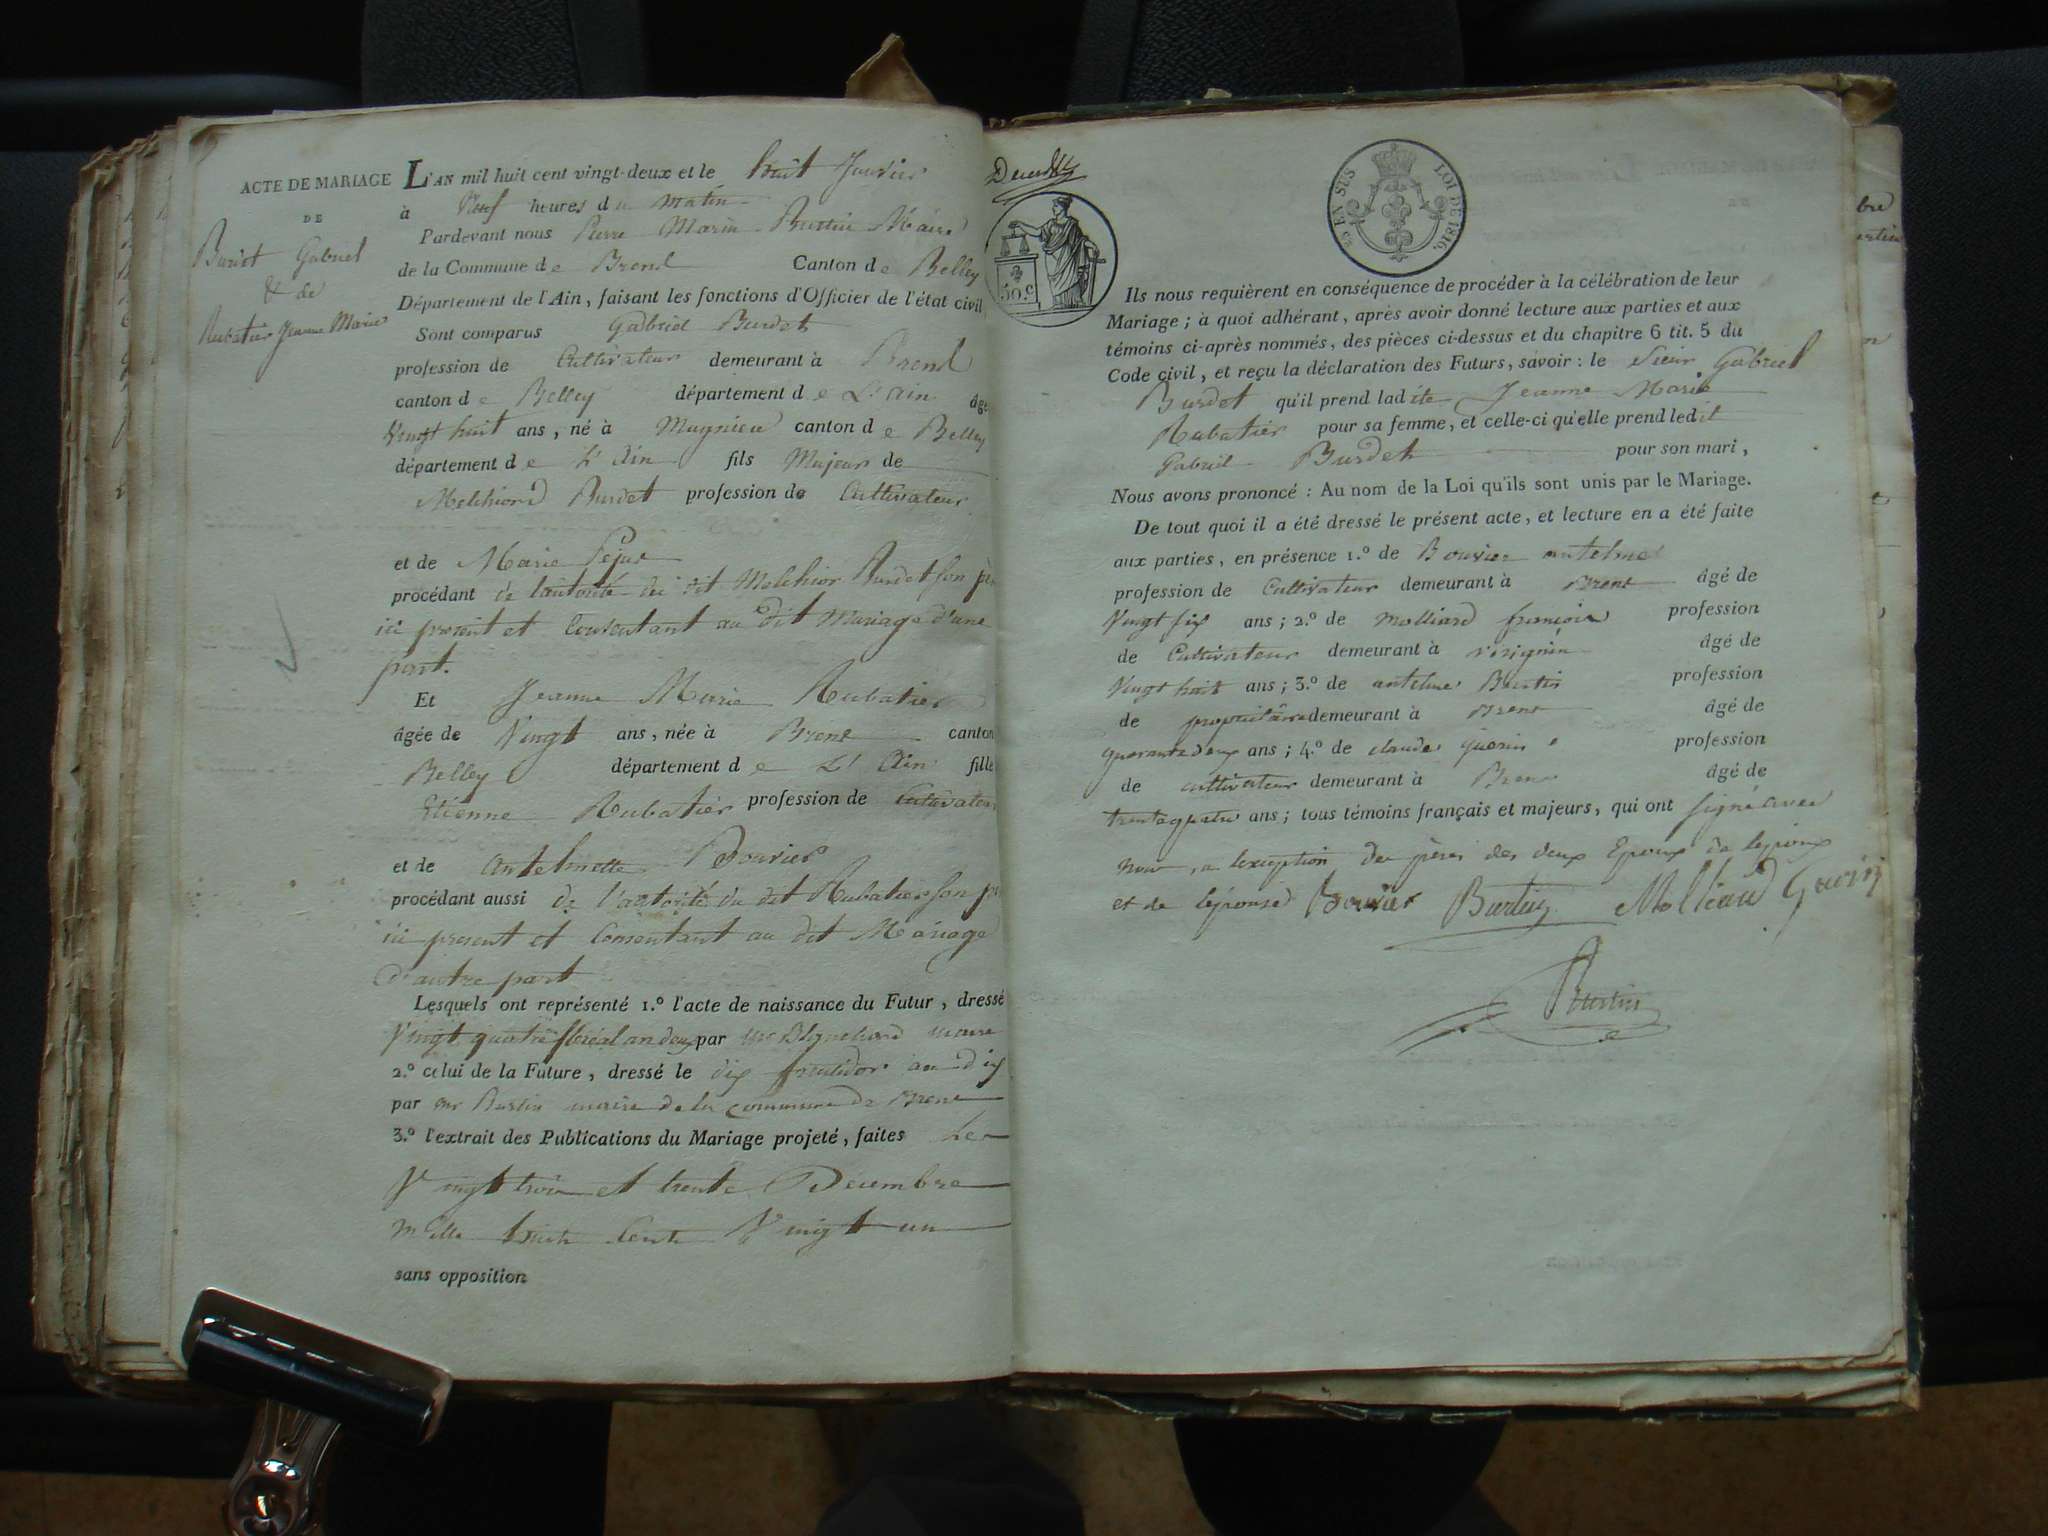 ACTE DE MARIAGE
DE
Burdet Gabriel
& de
Rubatier Jeanne Marie
L'AN mil huit cent vingt-deux et le huit Janvier
à Neuf heures du matin
Pardevant nous Pierre Marin Burtin Maire
de la Commune de Brens Canton de Belley
Département de l'Ain, faisant les fonctions d'Officier de l'état civil
Sont comparus Gabriel Burdet
profession de Cultivateur demeurant à Brens
canton de Belley département de L'Ain âgé
Vingt huit ans, né à Magnieu canton de Belley
département de L'Ain fils Majeur de
Melchiord Burdet profession de Cultivateur
et de Marie Pejus
procédant de l'autorité du dit Melchior Burdet son père
ici present et Consentant au dit Mariage d'une
part.
Et Jeanne Marie Rubatier
âgée de Vingt ans, née à Brens canton
Belley département de L'Ain fille
Etienne Rubatier profession de Cultivateur
et de Antelmette Bouvier
procédant aussi de l'autorité du dit Rubatier son
ici present et Consentant au dit Mariage
d'autre part
Lesquels ont représenté 1.º l'acte de naissance du Futur, dressé
Vingt quatre floréal an deux par mr maire
2.º celui de la Future, dressé le dix an dix
par mr Burtin maire de la commune de Brens
3.º l'extrait des Publications du Mariage projeté, faites Les
Vingt trois et trente Décembre
mille huit Cent Vingt un
sans opposition
50 c
EN SUS LOI DE 1816.
Ils nous requièrent en conséquence de procéder à la célébration de leur
Mariage; à quoi adhérant, après avoir donné lecture aux parties et aux
témoins ci-après nommés, des pièces ci-dessus et du chapitre 6 tit. 5 du
Code civil, et reçu la déclaration des Futurs, savoir: le Sieur Gabriel
Burdet qu'il prend ladite Jeanne Marie
Rubatier pour sa femme, et celle-ci qu'elle prend ledit
Gabriel Burdet pour son mari,
Nous avons prononcé: Au nom de la Loi qu'ils sont unis par le Mariage.
De tout quoi il a été dressé le présent acte, et lecture en a été faite
aux parties, en présence 1.º de Bouvier antelme
profession de Cultivateur demeurant à Brens âgé de
Vingt six ans; 2.º de Molliard françois profession
de Cultivateur demeurant à virignin âgé de
Vingt huit ans; 3.º de antelme Burtin profession
de propriétaire demeurant à Brens âgé de
quarante deux ans; 4.º de claude guerin profession
de cultivateur demeurant à Brens âgé de
trente quatre ans; tous témoins français et majeurs, qui ont signé avec
nous, a lexception des pères des deux Epoux de lepoux
et de lépouse Bouvier Burtin Molliard Guerin
Burtin